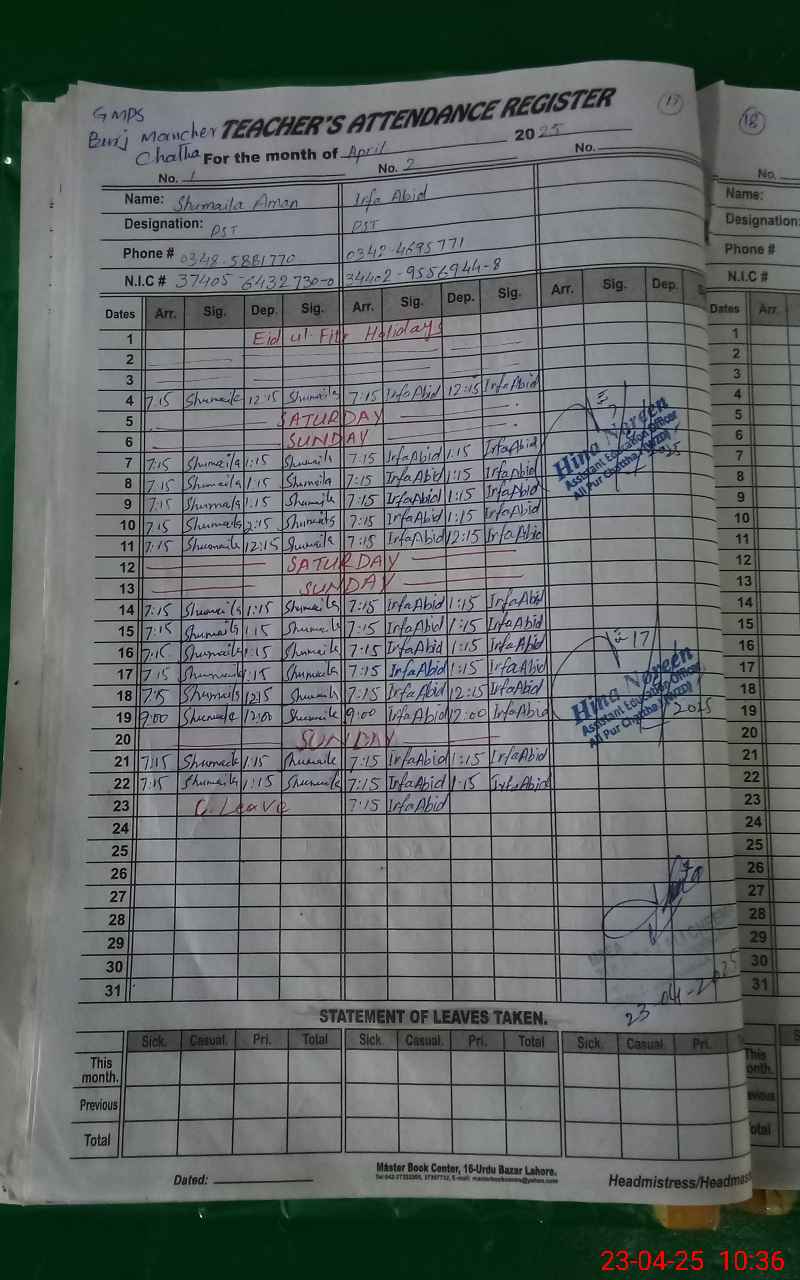 GMPS
Burj Mancher
Chatha
TEACHER'S ATTENDANCE REGISTER
17
18
For the month of April 2025
No. 1 No. 2 No.
No.
Name: Shumaila Aman Irfa Abid
Name:
Designation: PST PST
Designation:
Phone # 0348-5881770 0342-4695771
Phone #
N.I.C # 37405-6432730-0 34402-9556944-8
N.I.C #
Dates Arr. Sig. Dep. Sig. Arr. Sig. Dep. Sig. Arr. Sig. Dep. S
Dates Arr.
1 Eid ul Fitr Holidays
2
3
4 7:15 Shumaila 12:15 Shumaila 7:15 Irfa Abid 12:15 Irfa Abid
5 SATURDAY
6 SUNDAY
7 7:15 Shumaila 1:15 Shumaila 7:15 Irfa Abid 1:15 Irfa Abid
8 7:15 Shumaila 1:15 Shumaila 7:15 Irfa Abid 1:15 Irfa Abid
9 7:15 Shumaila 1:15 Shumaila 7:15 Irfa Abid 1:15 Irfa Abid
10 7:15 Shumaila 2:15 Shumaila 7:15 Irfa Abid 1:15 Irfa Abid
11 7:15 Shumaila 12:15 Shumaila 7:15 Irfa Abid 12:15 Irfa Abid
12 SATURDAY
13 SUNDAY
14 7:15 Shumaila 1:15 Shumaila 7:15 Irfa Abid 1:15 Irfa Abid
15 7:15 Shumaila 1:15 Shumaila 7:15 Irfa Abid 1:15 Irfa Abid
16 7:15 Shumaila 1:15 Shumaila 7:15 Irfa Abid 1:15 Irfa Abid
17 7:15 Shumaila 1:15 Shumaila 7:15 Irfa Abid 1:15 Irfa Abid
18 7:15 Shumaila 12:15 Shumaila 7:15 Irfa Abid 12:15 Irfa Abid
19 9:00 Shumaila 12:00 Shumaila 9:00 Irfa Abid 12:00 Irfa Abid
20 SUNDAY
21 7:15 Shumaila 1:15 Shumaila 7:15 Irfa Abid 1:15 Irfa Abid
22 7:15 Shumaila 1:15 Shumaila 7:15 Irfa Abid 1:15 Irfa Abid
23 C. Leave 7:15 Irfa Abid
24
25
26
27
28
29
30
31
Hina Noreen
Assistant Education Officer
Ali Pur Chattha
17
Hina Noreen
Assistant Education Officer
Ali Pur Chattha
2025
23-04-2025
1
2
3
4
5
6
7
8
9
10
11
12
13
14
15
16
17
18
19
20
21
22
23
24
25
26
27
28
29
30
31
STATEMENT OF LEAVES TAKEN.
Sick. Casual. Pri. Total Sick. Casual. Pri. Total Sick. Casual. Pri.
This month.
Previous
Total
This
onth.
evious
otal
Dated:
Master Book Center, 16-Urdu Bazar Lahore.
Headmistress/Headmas
23-04-25 10:36